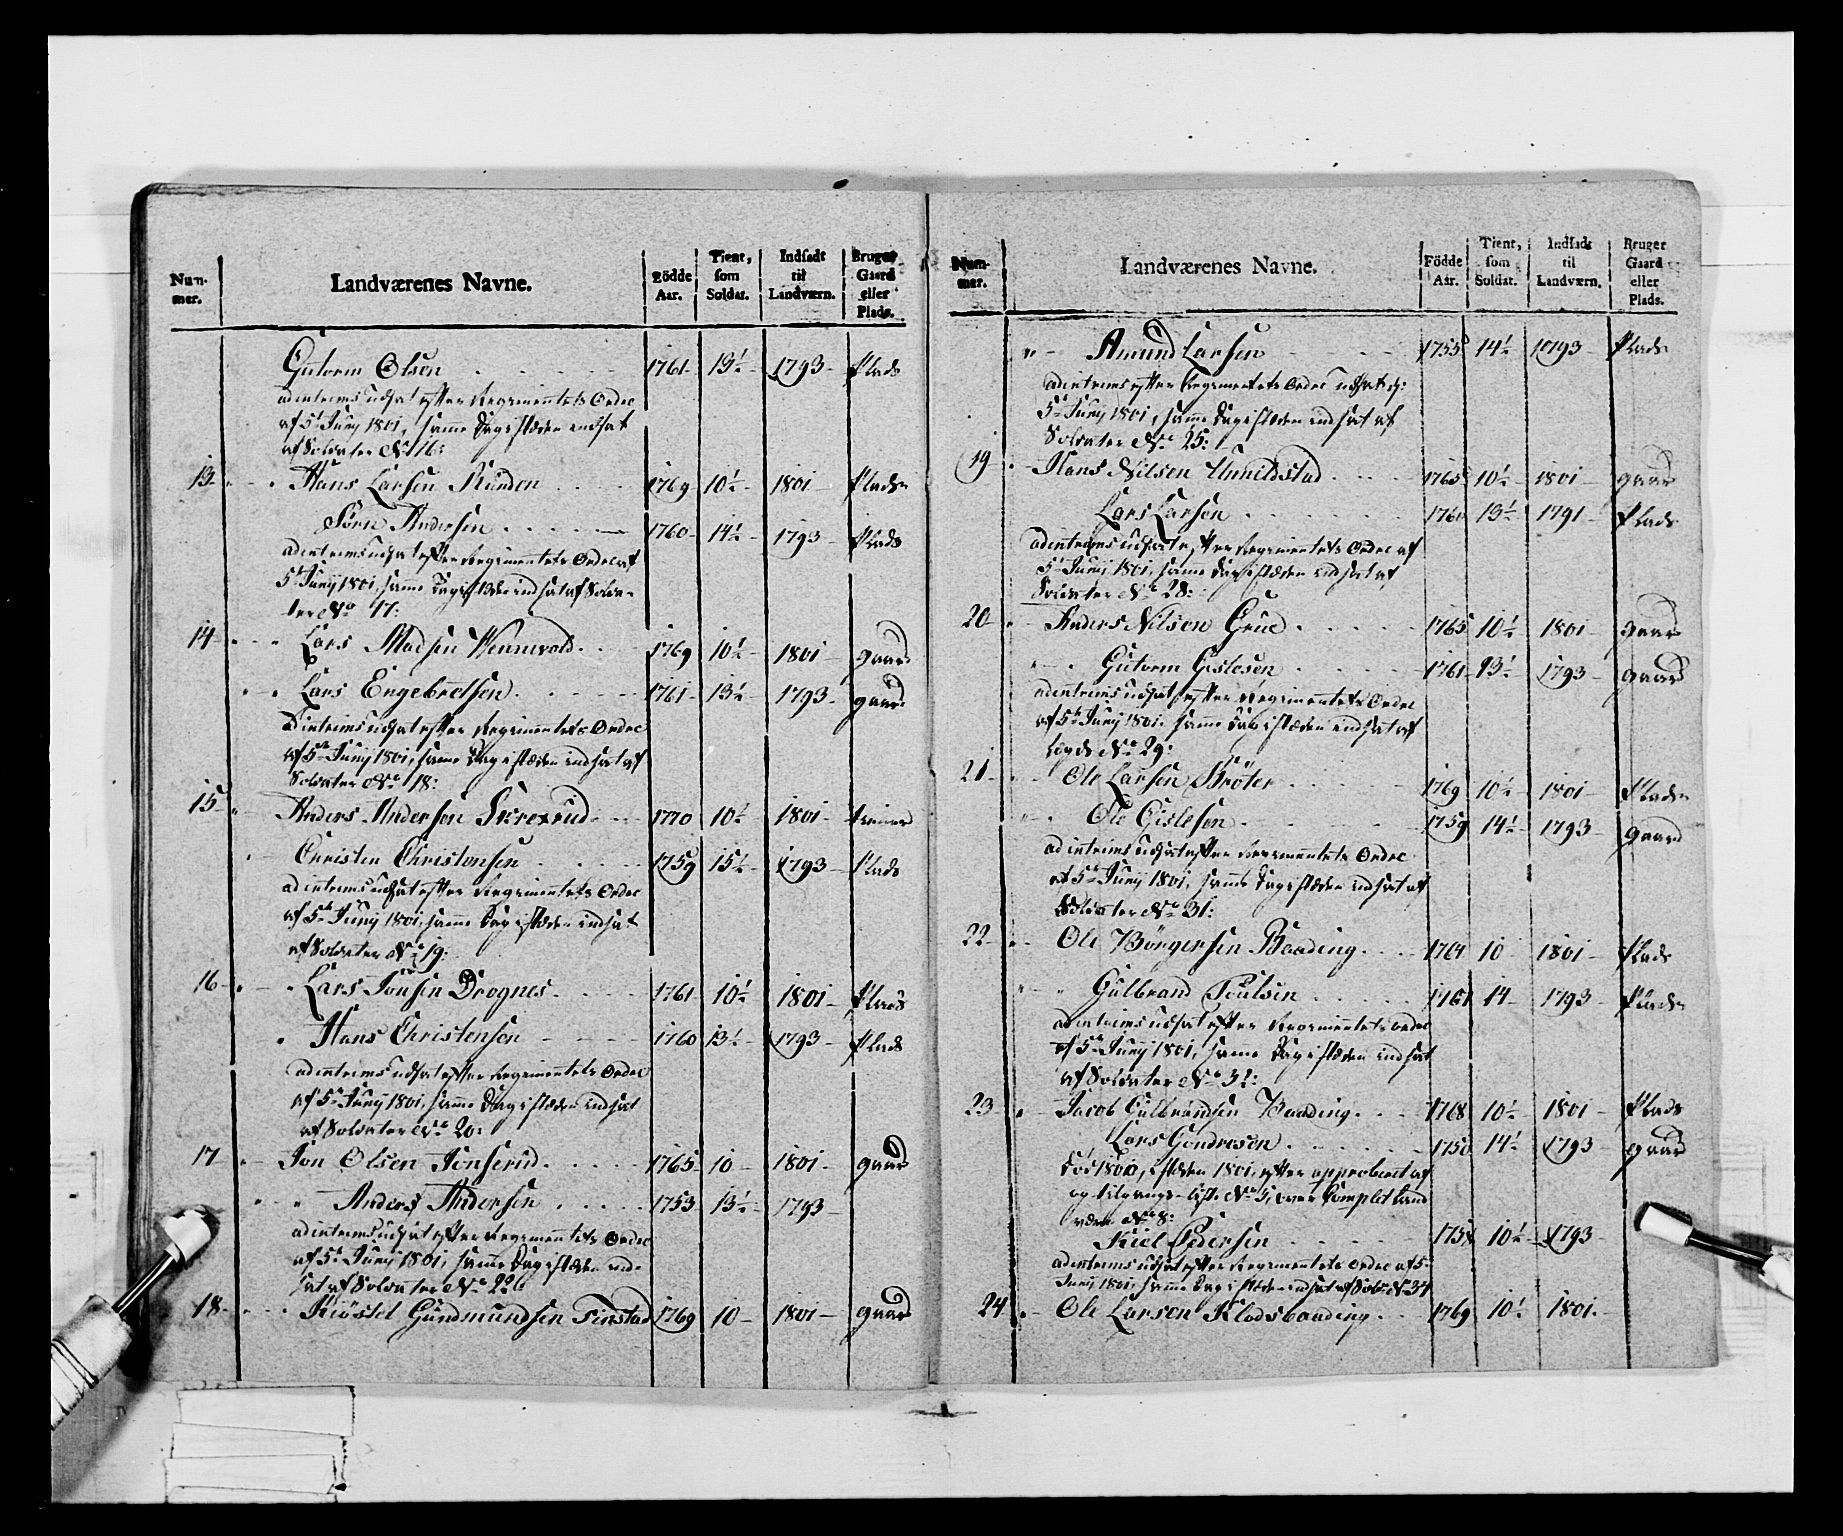 Num-
mer.
Landværenes Navne.
Födde
Aar.
Tient,
som
Soldat.
Indsadt
til
Landværn.
Bruger
Gaard
eller
Plads.
Gutorm Olsen 1761 13½ 1793 Plads
ad interims udsat efter Regimentets Ordre
af 5te Junij 1801, samme Dag i stæden indsat
af Soldater No 16:
13 Hans Larsen Runden 1769 10½ 1801 Plads
Sörn Andersen 1760 14½ 1793 Plads
ad interims udsat efter Regimentets Ordre af
5te Junij 1801, samme Dag i stæden indsat af Solda-
ter No 17:
14 Lars Madsen Wennevold 1769 10½ 1801 gaard
Lars Engebretsen 1761 13½ 1793 gaard
ad interims udsat efter Regimentets Ordre
af 5te Junij 1801, samme Dag i stæden indsat af
Soldater No 18:
15 Anders Andersen 1770 10½ 1801
Christen Christensen 1759 15½ 1793 Plads
ad interims udsat efter Regimentets Ordre
af 5te Junij 1801, samme Dag i stæden indsat
af Soldater No 19:
16 Lars Jonsen Drognes 1761 10½ 1801 Plads
Hans Christensen 1760 13½ 1793 Plads
ad interims udsat efter Regimentets Ordre
af 5te Junij 1801, samme Dag i stæden indsat
af Soldater No 20:
17 Jon Olsen Jonserud 1765 10 1801 gaard
Anders Andersen 1753 13½ 1793
ad interims udsat efter Regimentets Ordre
af 5te Junij 1801, samme Dag i stæden ind-
sat af Soldater No 22:
18 Kiöstel Gundmundsen Finstad 1769 10 1801 gaard
Num-
mer.
Landværenes Navne.
Födde
Aar.
Tient,
som
Soldat.
Indsadt
til
Landværn.
Bruger
Gaard
eller
Plads.
Amund Larsen 1755 14½ 1793 Plads
ad interims efter Regimentets Ordre udsat d:
5te Junij 1801, samme Dag i stæden indsat af
Soldater No 25:
19 Hans Nilsen Unnildstad 1765 10½ 1801 gaard
Lars Larsen 1761 13½ 1791 Plads
ad interims udsat efter Regimentets Ordre af
5te Junij 1801, samme Dag i stæden indsat af
Soldater No 28:
20 Anders Nilsen Grue 1765 10½ 1801 gaard
Gutorm Gislesen 1761 13½ 1793 gaard
ad interims udsat efter Regimentets Ordre
af 5te Junij 1801, samme Dag i stæden indsat af
No 29:
21 Ole Larsen Bröter 1769 10½ 1801 Plads
Ole Gislesen 1759 14½ 1793 gaard
ad interims udsat efter Regimentets Ordre
af 5te Junij 1801, samme Dag i stæden indsat af
Soldater No 31:
22 Ole Börgersen Baading 1761 10 1801 Plads
Gulbrand Poulsen 1761 14 1793 Plads
ad interims udsat efter Regimentets ordre
af 5te Junij 1801, samme Dag i stæden indsat
af Soldater No 32:
23 Jacob Gulbrandsen Baading 1768 10½ 1801 Plads
Lars Gondresen 1750 14½ 1793 gaard
Död 1800, i stæden 1801, efter approberet af
og tilgangs-liste No 5, over Complet Land
værn No 8:
Kiel Pedersen 175 10½ 1793
ad interims udsat efter Regimentets Ordre af 5te
Junij 1801, samme Dag i stæden indsat af Sold: No 34
24 Ole Larsen Klodsbaading 1769 10½ 1801